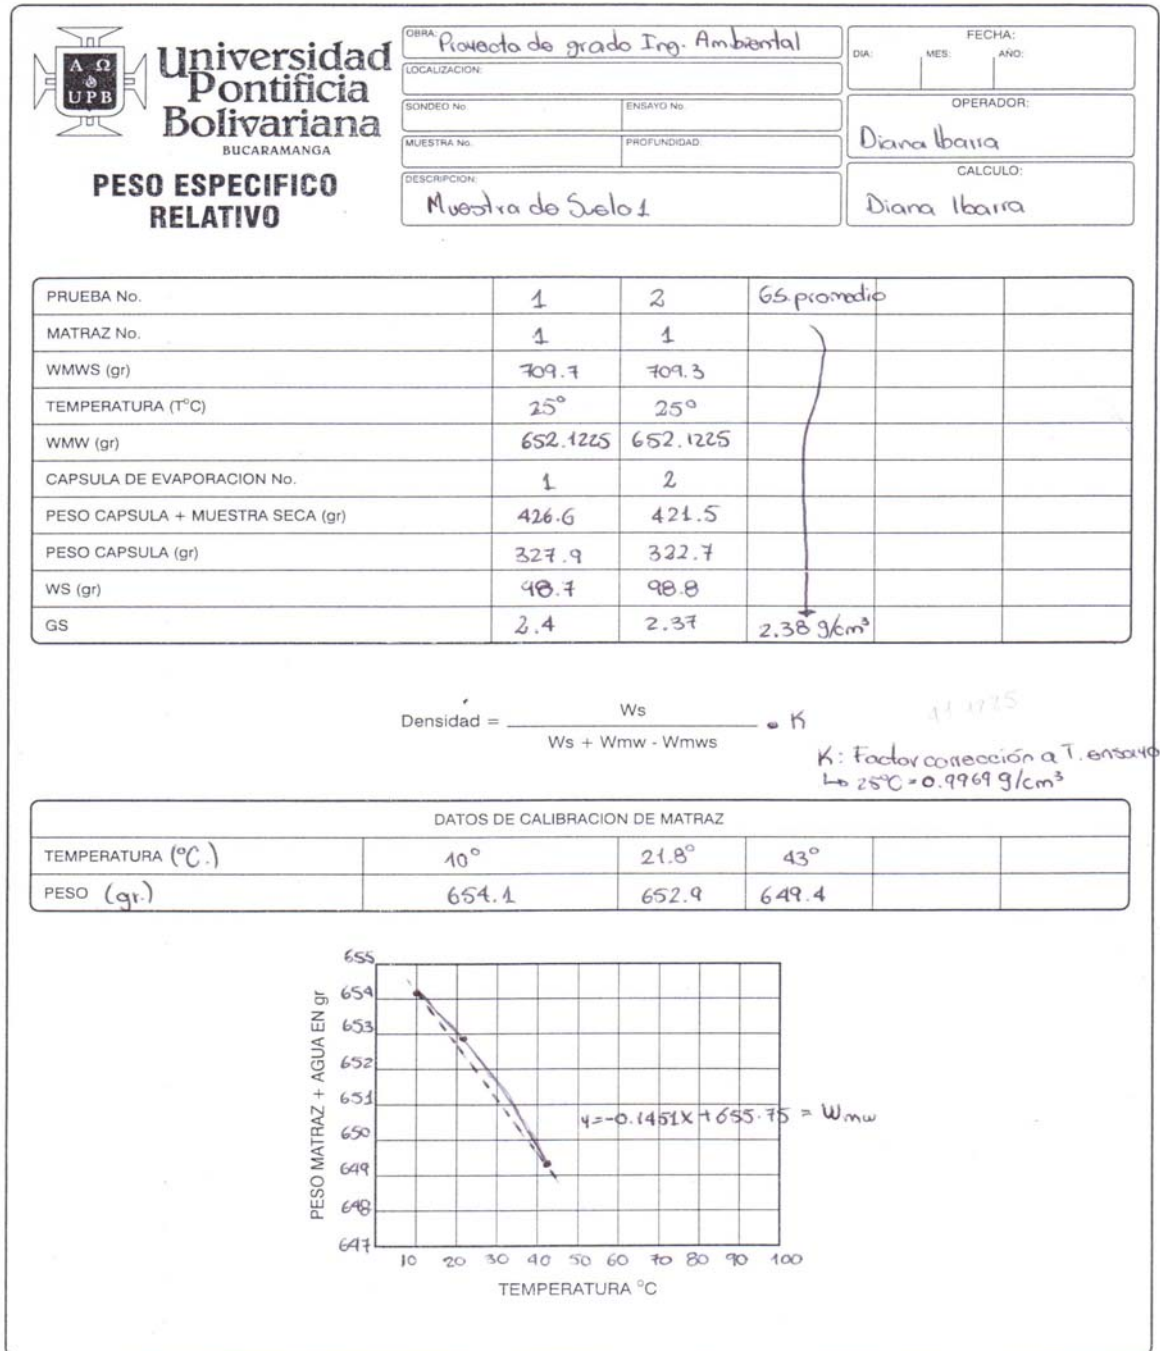 Α Ω
&
UPB
Universidad
Pontificia
Bolivariana
BUCARAMANGA
PESO ESPECIFICO
RELATIVO
OBRA: Proyecto de grado Ing. Ambiental
LOCALIZACION:
SONDEO No. ENSAYO No.
MUESTRA No. PROFUNDIDAD:
DESCRIPCION:
Muestra de Suelo 1
FECHA:
DIA: MES: AÑO:
OPERADOR:
Diana Ibarra
CALCULO:
Diana Ibarra
PRUEBA No. 1 2 GS promedio
MATRAZ No. 1 1
WMWS (gr) 709.7 709.3
TEMPERATURA (T°C) 25° 25°
WMW (gr) 652.1225 652.1225
CAPSULA DE EVAPORACION No. 1 2
PESO CAPSULA + MUESTRA SECA (gr) 426.6 421.5
PESO CAPSULA (gr) 327.9 322.7
WS (gr) 98.7 98.8
GS 2.4 2.37 2.38 g/cm³
Densidad = Ws / Ws + Wmw - Wmws • K
K: Factor corrección a T. ensayo
↳ 25°C = 0.9969 g/cm³
DATOS DE CALIBRACION DE MATRAZ
TEMPERATURA (°C.) 10° 21.8° 43°
PESO (gr.) 654.1 652.9 649.4
PESO MATRAZ + AGUA EN gr
655
654
653
652
651
650
649
648
647
y=-0.1451X+655.75 = Wmw
10 20 30 40 50 60 70 80 90 100
TEMPERATURA °C